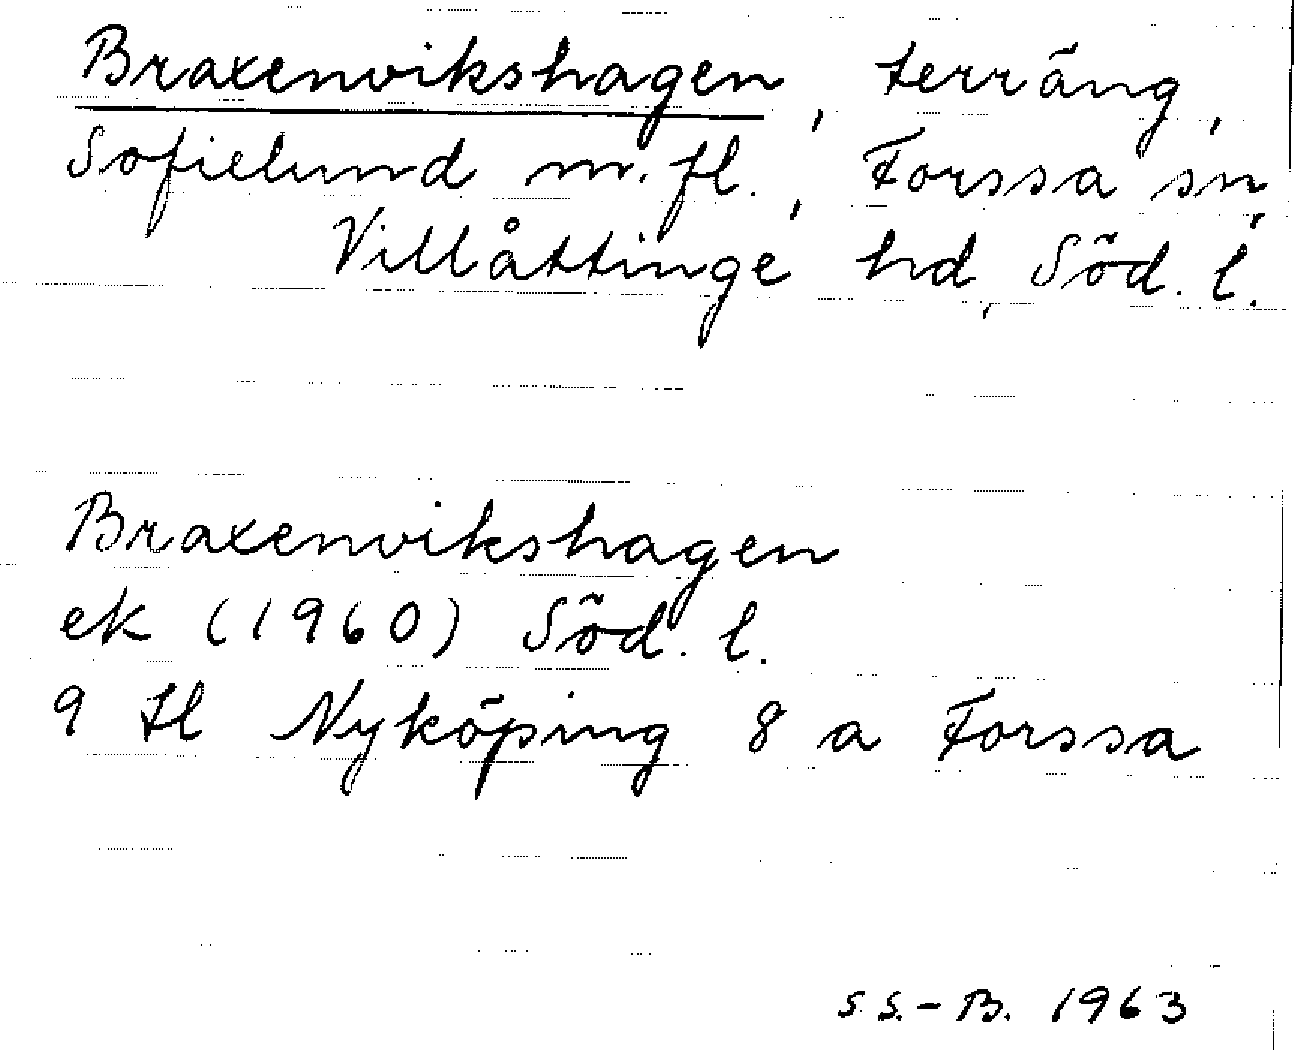 Braxenvikshagen, terräng,
Sofielund m.fl., Forssa sn,
Villåttinge hd, Söd. l.
Braxenvikshagen
ek (1960) Söd. l.
9 H Nyköping 8 a Forssa
S.S.-B. 1963